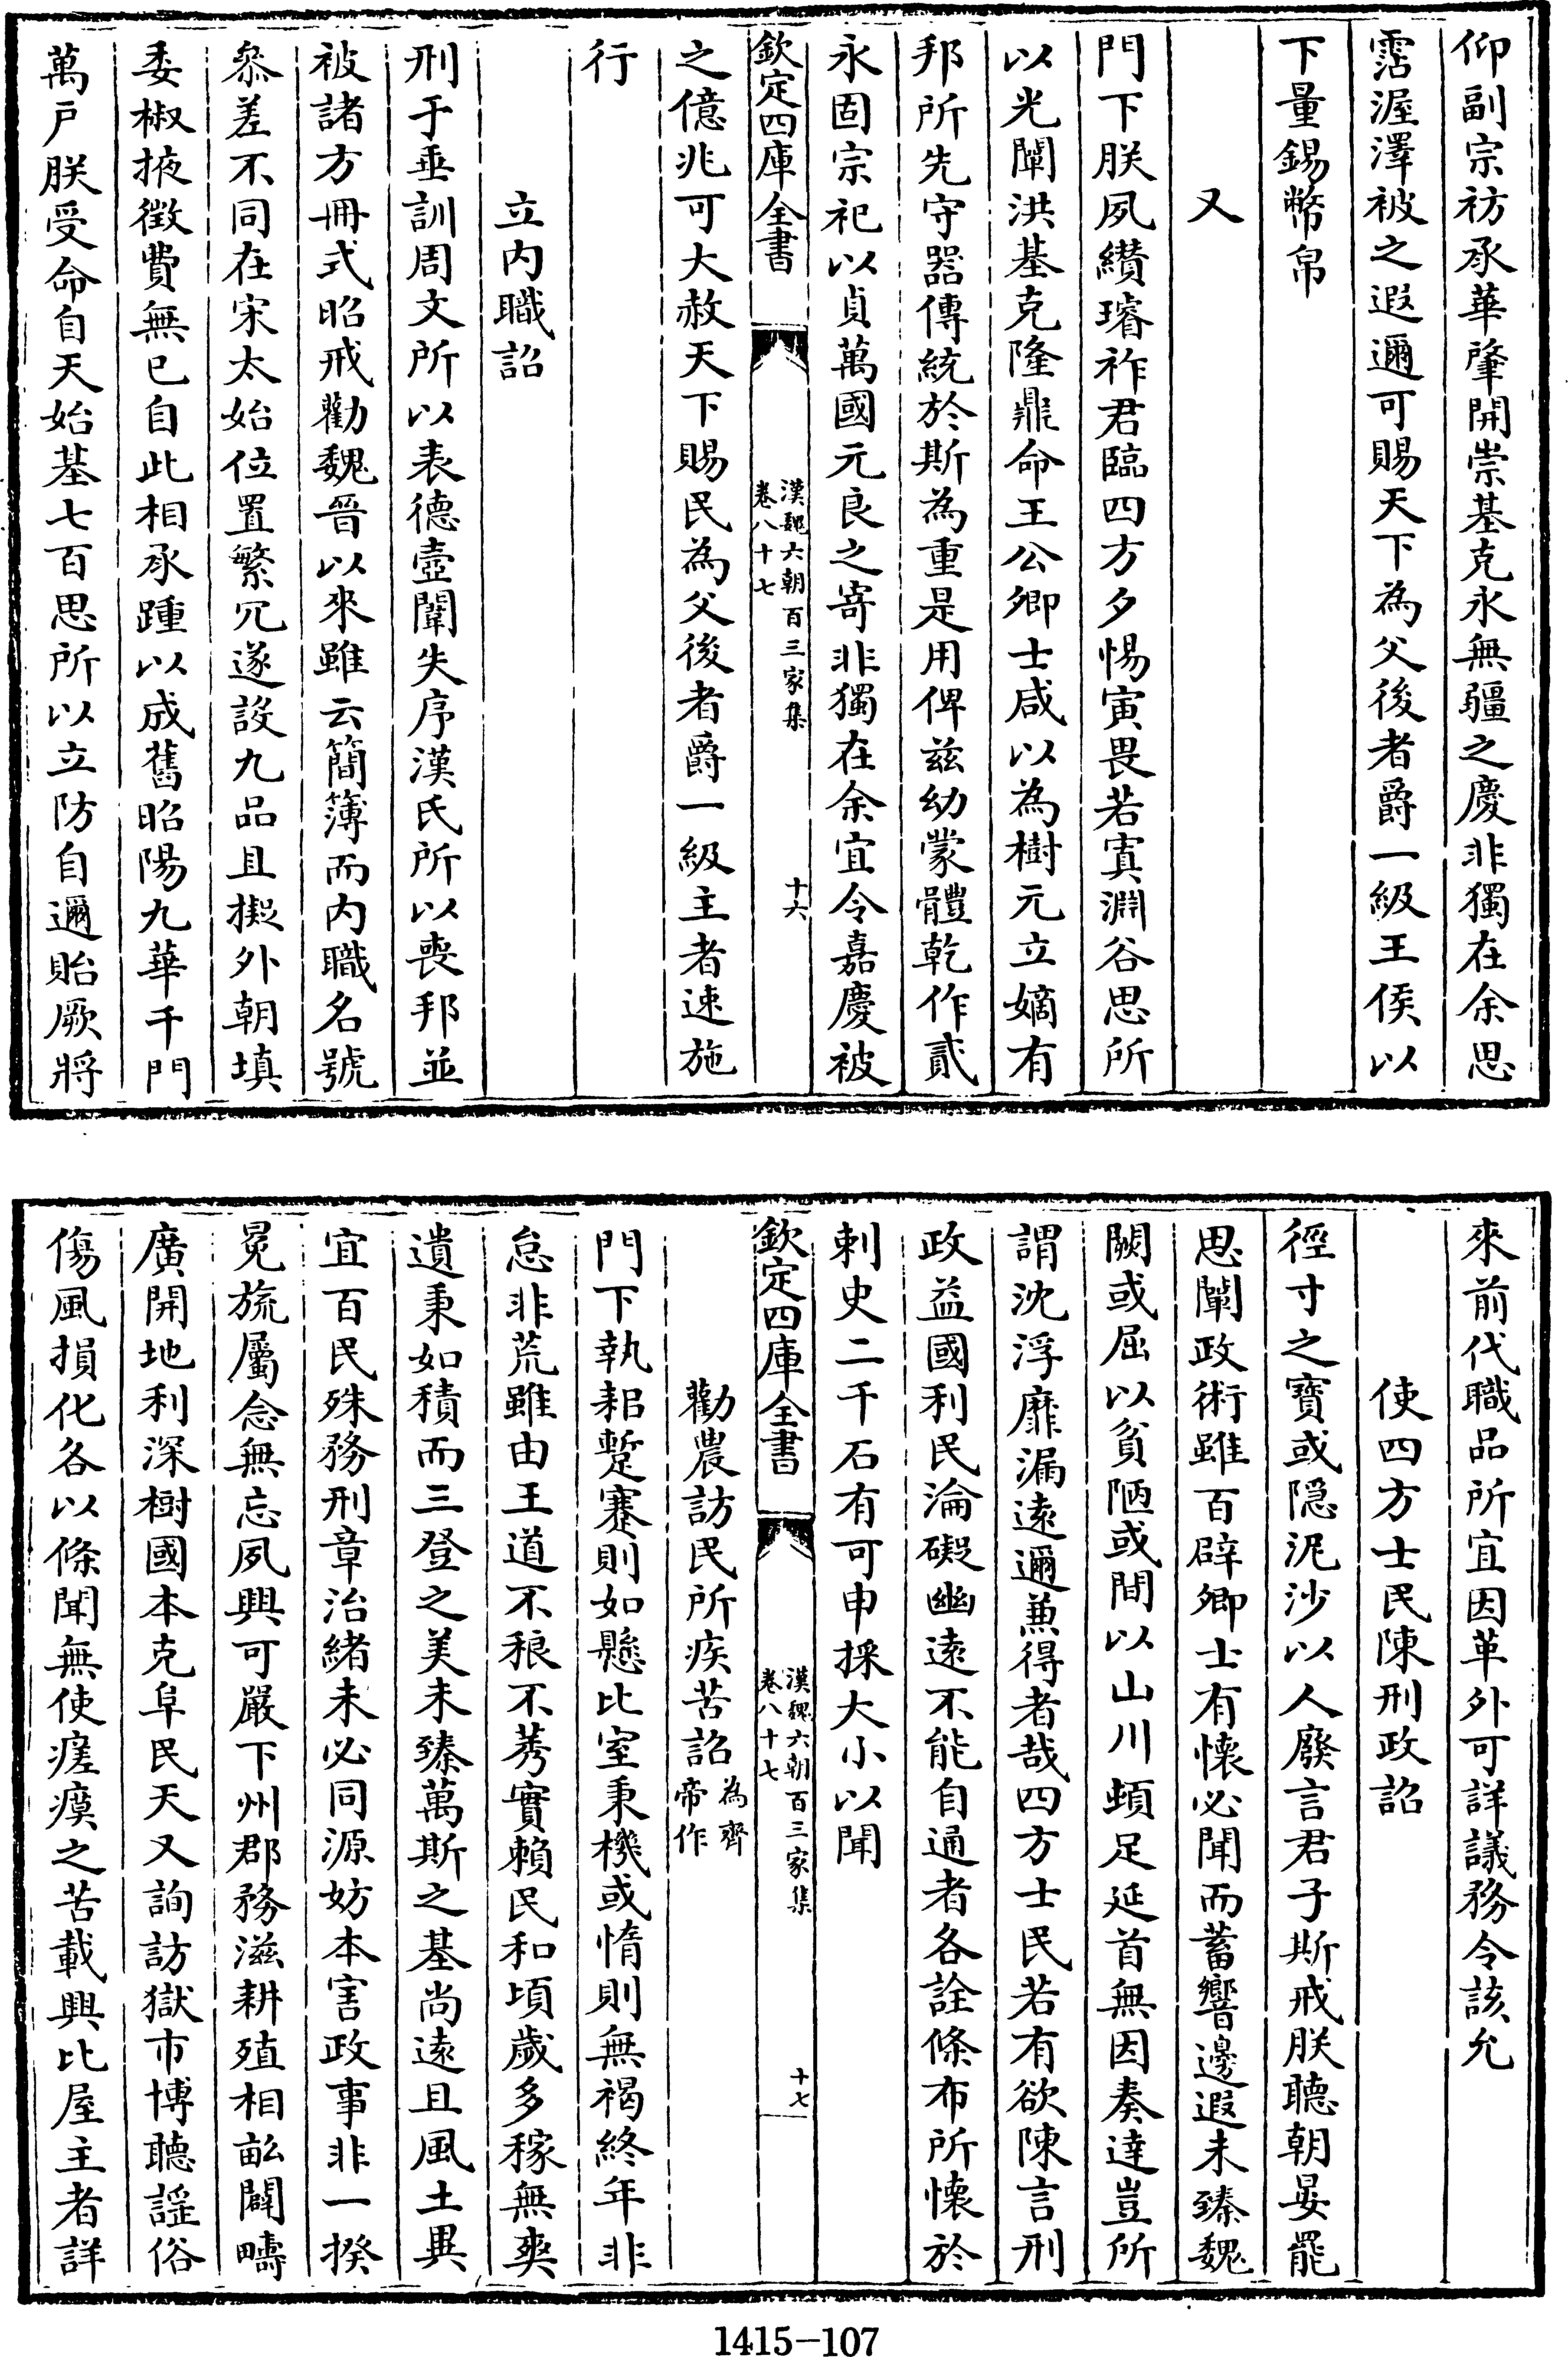 仰副宗祊承華肇開崇基克永無疆之慶非獨在余思
霑渥澤被之遐邇可賜天下為父後者爵一級王侯以
下量錫幣帛
又
門下朕夙纉璿祚君臨四方夕惕寅畏若寘淵谷思所
以光闡洪基克隆鼎命王公卿士咸以為樹元立嫡有
邦所先守器傳統於斯為重是用俾兹幼蒙體乾作貳
永固宗祀以貞萬國元良之寄非獨在余宜令嘉慶被
欽定四庫全書
漢魏六朝百三家集
卷八十七
十六
之億兆可大赦天下賜民為父後者爵一級主者速施
行
立内職詔
刑于垂訓周文所以表德壼闈失序漢氏所以喪邦並
被諸方冊式昭戒勸魏晉以來雖云簡簿而内職名號
叅差不同在宋太始位置繁冗遂設九品且擬外朝填
委椒掖徵費無已自此相承踵以成舊昭陽九華千門
萬户朕受命自天始基七百思所以立防自邇貽厥將
來前代職品所宜因革外可詳議務令該允
使四方士民陳刑政詔
徑寸之寶或隱泥沙以人廢言君子斯戒朕聽朝晏罷
思闡政術雖百辟卿士有懷必聞而蓄響邊遐未臻魏
闕或屈以貧陋或間以山川頓足延首無因奏達豈所
謂沈浮靡漏逺邇兼得者哉四方士民若有欲陳言刑
政益國利民淪礙幽逺不能自通者各詮條布所懷於
刺史二千石有可申採大小以聞
欽定四庫全書
漢魏六朝百三家集
卷八十七
十七
勸農訪民所疾苦詔為齊帝作
門下執耜蹔蹇則如懸比室秉機或惰則無褐終年非
怠非荒雖由王道不稂不莠實賴民和頃歲多稼無爽
遺秉如積而三登之美未臻萬斯之基尚逺且風土異
宜百民殊務刑章治緒未必同源妨本害政事非一揆
冕旒屬念無忘夙興可嚴下州郡務滋耕殖相畝闢疇
廣開地利深樹國本克阜民天又詢訪獄市博聽謡俗
傷風損化各以條聞無使瘥瘼之苦載興比屋主者詳
1415-107